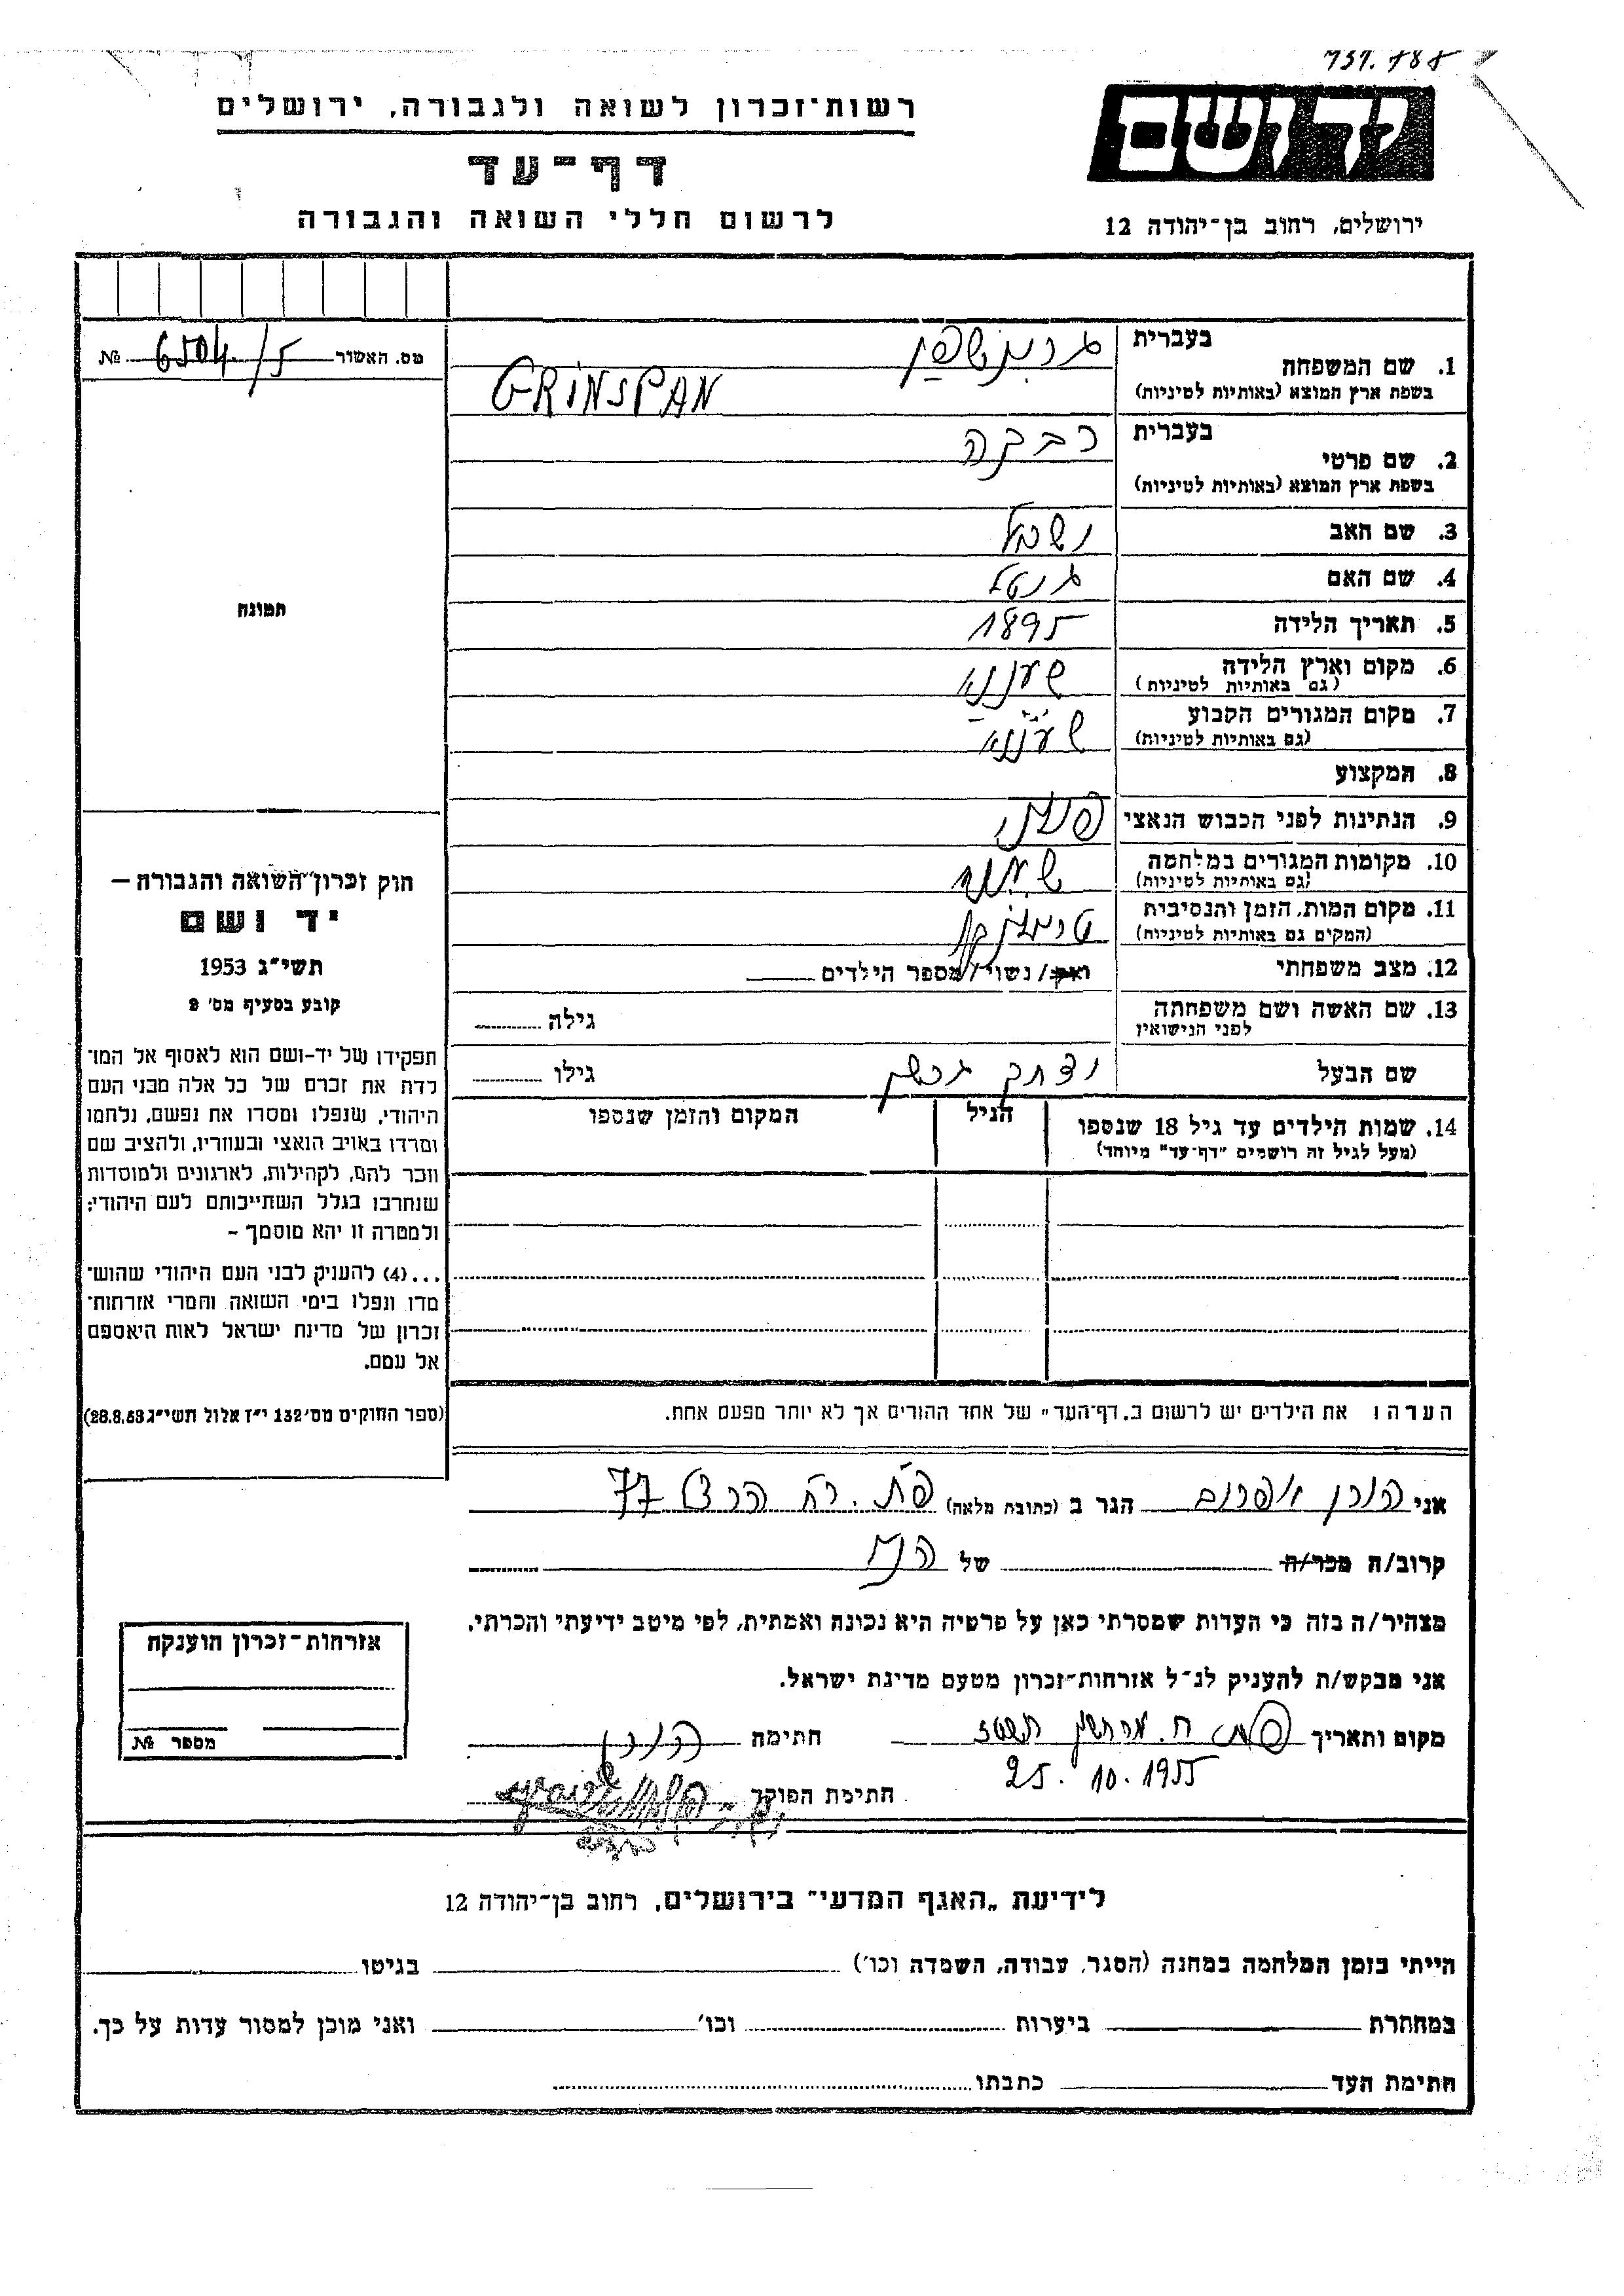 737.788
ידושם
רשות־זכרון לשואה ולגבורה, ירושלים
דף־עד
לרשום חללי השואה והגבורה
ירושלים, רחוב בן־יהודה 12
מס. האשור 6504/5 №
1. שם המשפחה
בעברית גרינשפן
בשפת ארץ המוצא (באותיות לטיניות) GRINSPAN
2. שם פרטי
בעברית רבקה
בשפת ארץ המוצא (באותיות לטיניות)
3. שם האב
4. שם האם
5. תאריך הלידה 1895
6. מקום וארץ הלידה
(גם באותיות לטיניות)
7. מקום המגורים הקבוע
(גם באותיות לטיניות)
8. המקצוע
9. הנתינות לפני הכבוש הנאצי
10. מקומות המגורים במלחמה
(גם באותיות לטיניות)
11. מקום המות, הזמן והנסיבית
(המקום גם באותיות לטיניות)
12. מצב משפחתי
רוק/ נשוי/ מספר הילדים
13. שם האשה ושם משפחתה
לפני הנישואין
גילה
שם הבעל יצחק
גילו
14. שמות הילדים עד גיל 18 שנספו
(מעל לגיל זה רושמים "דף־עד" מיוחד)
הגיל
המקום והזמן שנספו
תמונה
חוק זכרון השואה והגבורה –
יד ושם
תשי"ג 1953
קובע בסעיף מס' 2
תפקידו של יד-ושם הוא לאסוף אל המו־
לדת את זכרם של כל אלה מבני העם
היהודי, שנפלו ומסרו את נפשם, נלחמו
ומרדו באויב הנאצי ובעוזריו, ולהציב שם
וזכר להם, לקהילות, לארגונים ולמוסדות
שנחרבו בגלל השתייכותם לעם היהודי;
ולמטרה זו יהא מוסמך –
...(4) להעניק לבני העם היהודי שהוש־
מדו ונפלו בימי השואה והמרי אזרחות־
זכרון של מדינת ישראל לאות היאספם
אל עמם.
(ספר החוקים מס' 132 י"ז אלול תשי"ג 28.8.53)
הערה: את הילדים יש לרשום ב„דף־העד" של אחד ההורים אך לא יותר מפעם אחת.
אני הורן אפרים הגר ב (כתובת מלאה) פ"ת. רח הרצל 77
קרוב/ה מכר/ה של
מצהיר/ה בזה כי העדות שמסרתי כאן על פרטיה היא נכונה ואמתית, לפי מיטב ידיעתי והכרתי.
אני מבקש/ת להעניק לנ"ל אזרחות־זכרון מטעם מדינת ישראל.
מקום ותאריך פ"ת ח. מרחשון תשטז חתימה הורן
25.10.1955
חתימת הפוקד
אזרחות־זכרון הוענקה
מספר №
לידיעת „האגף המדעי" בירושלים, רחוב בן־יהודה 12
הייתי בזמן המלחמה במחנה (הסגר, עבודה, השמדה וכו') בגיטו
במחתרת ביערות וכו' ואני מוכן למסור עדות על כך.
חתימת העד כתבתו